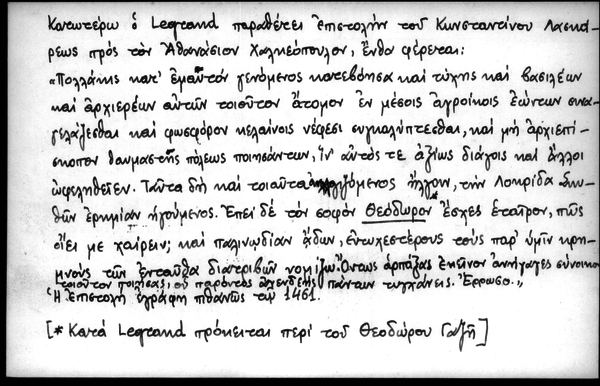 Κατωτέρω ὁ Legrand παραθέτει ἐπιστολήν τοῦ Κωνσταντίνου Λασκά-
ρεως πρός τόν Ἀθανάσιον Χαλκεόπουλον, ἔνθα φέρεται:
«Πολλάκις κατ' ἐμαυτόν γενόμενος κατεβόησα καί τύχης καί βασιλέων
καί ἀρχιερέων αὐτῶν τοιοῦτον ἄτομον ἐν μέσοις ἀγροίκοις ἐώντων συνα-
γελάζεσθαι καί φωσφόρον κελαίνοις νέφεσι συγκαλύπτεσθαι, καί μή ἀρχιεπί-
σκοπον θαυμαστῆς πόλεως ποιησάντων, ἵν' αὐτός τε ἀξίως διάγοις καί ἄλλοι
ὠφεληθεῖεν. Ταῦτα δή καί τοιαῦτα ἤλγουν, τήν Λοκρίδα Σκυ-
θῶν ἐρημίαν ἡγούμενος. Ἐπεί δέ τόν σοφόν Θεόδωρον* ἔσχες ἑταῖρον, πῶς
οἴει με χαίρειν; καί παλινῳδίαν ᾄδων, εὐτυχεστέρους τούς παρ' ὑμῖν
τῶν ἐνταῦθα διατριβῶν νομίζω. Ὄντως ἁρπάξας ἐκεῖνον ἀνήγαγες σύνοικον
τοιοῦτον ποιήσας, οὗ παρόντος πάντων τυγχάνεις. Ἔρρωσο.»
Ἡ ἐπιστολή ἐγράφη πιθανῶς τῷ 1461.
[* Κατά Legrand πρόκειται περί τοῦ Θεοδώρου Γαζῆ]